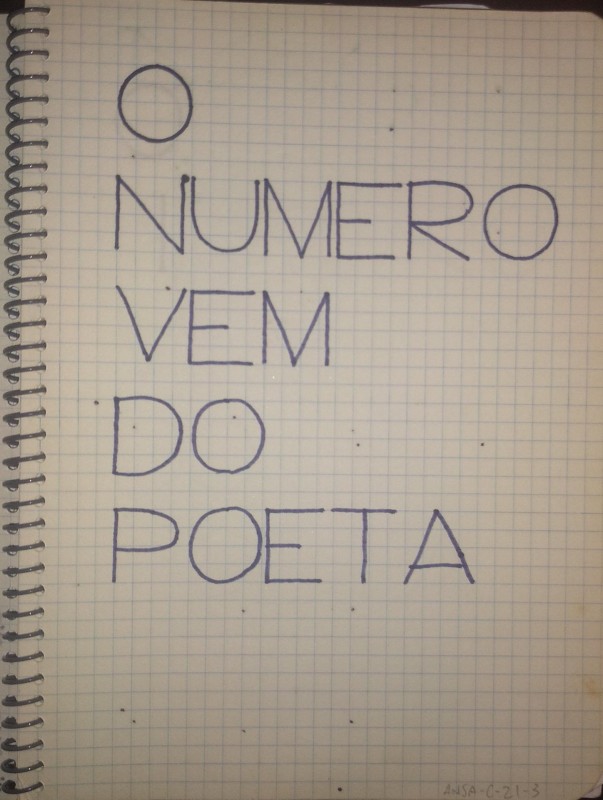 O
NUMERO
VEM
DO
POETA
ANSA-C-21-3